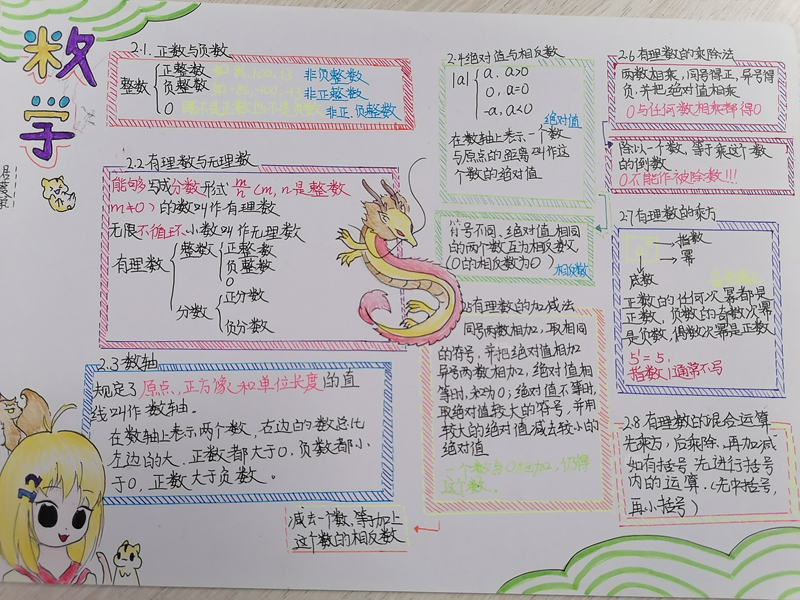 数学
2.1. 正数与负数
整数
正整数
非负整数
负整数
非正整数
0
非正.负整数
2.2有理数与无理数
能够写成分数形式 m/n (m,n是整数
m≠0)的数叫作有理数
无限不循环小数叫作无理数
有理数
整数
正整数
负整数
0
分数
正分数
负分数
2.3 数轴
规定了原点,正方像和单位长度的直
线叫作数轴。
在数轴上表示两个数,右边的数总比
左边的大.正数都大于0.负数都小
于0,正数大于负数。
减去一个数,等于加上
这个数的相反数
2.4绝对值与相反数
|a|
a, a>0
0, a=0
-a, a<0
绝对值
在数轴上表示一个数
与原点的距离叫作这
个数的绝对值
符号不同、绝对值相同
的两个数互为相反数
(0的相反数为0)
相反数
2.5有理数的加减法
同号两数相加,取相同
的符号,并把绝对值相加
异号两数相加,绝对值相
等时,和为0;绝对值不等时,
取绝对值较大的符号,并用
较大的绝对值减去较小的
绝对值
一个数与0相加,仍得
这个数。
2.6有理数的乘除法
两数相乘,同号得正,异号得
负,并把绝对值相乘
0与任何数相乘都得0
除以一个数,等于乘这个数
的倒数
0不能作被除数!!!
2.7有理数的乘方
指数
幂
底数
正数的任何次幂都是
正数,负数的奇数次幂
是负数,偶数次幂是正数
5¹=5.
指数1通常不写
2.8.有理数的混合运算
先乘方,后乘除,再加减
如有括号,先进行括号
内的运算.(先中括号,
再小括号)